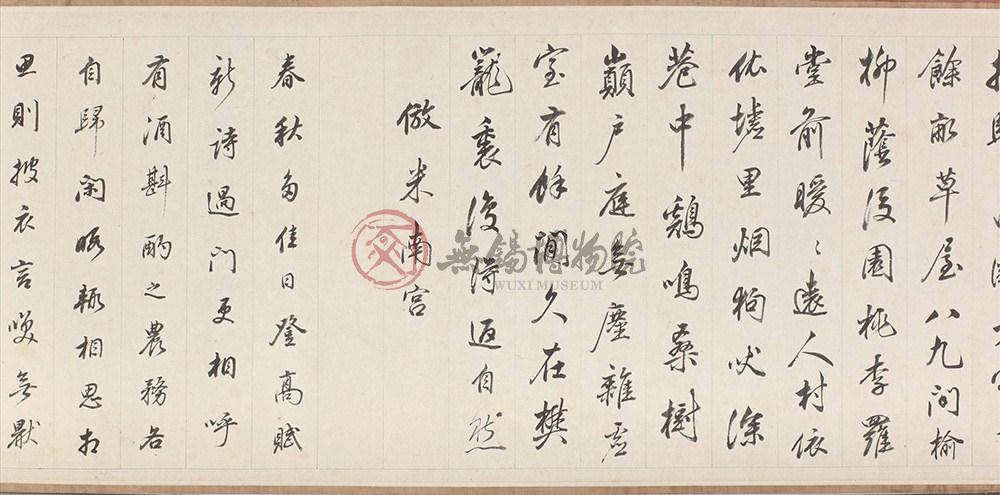 餘畝草屋八九間榆
柳蔭後園桃李羅
堂前暖〻遠人村依
依墟里烟狗吠深
巷中鷄鳴桑樹
巔戶庭無塵雜虛
室有餘閒久在樊
籠裏復得返自然
倣米南宮
春秋多佳日登高賦
新詩過門更相呼
有酒斟酌之農務各
自歸閑暇輒相思相
思則披衣言笑無厭
無錫博物院
WUXI MUSEUM